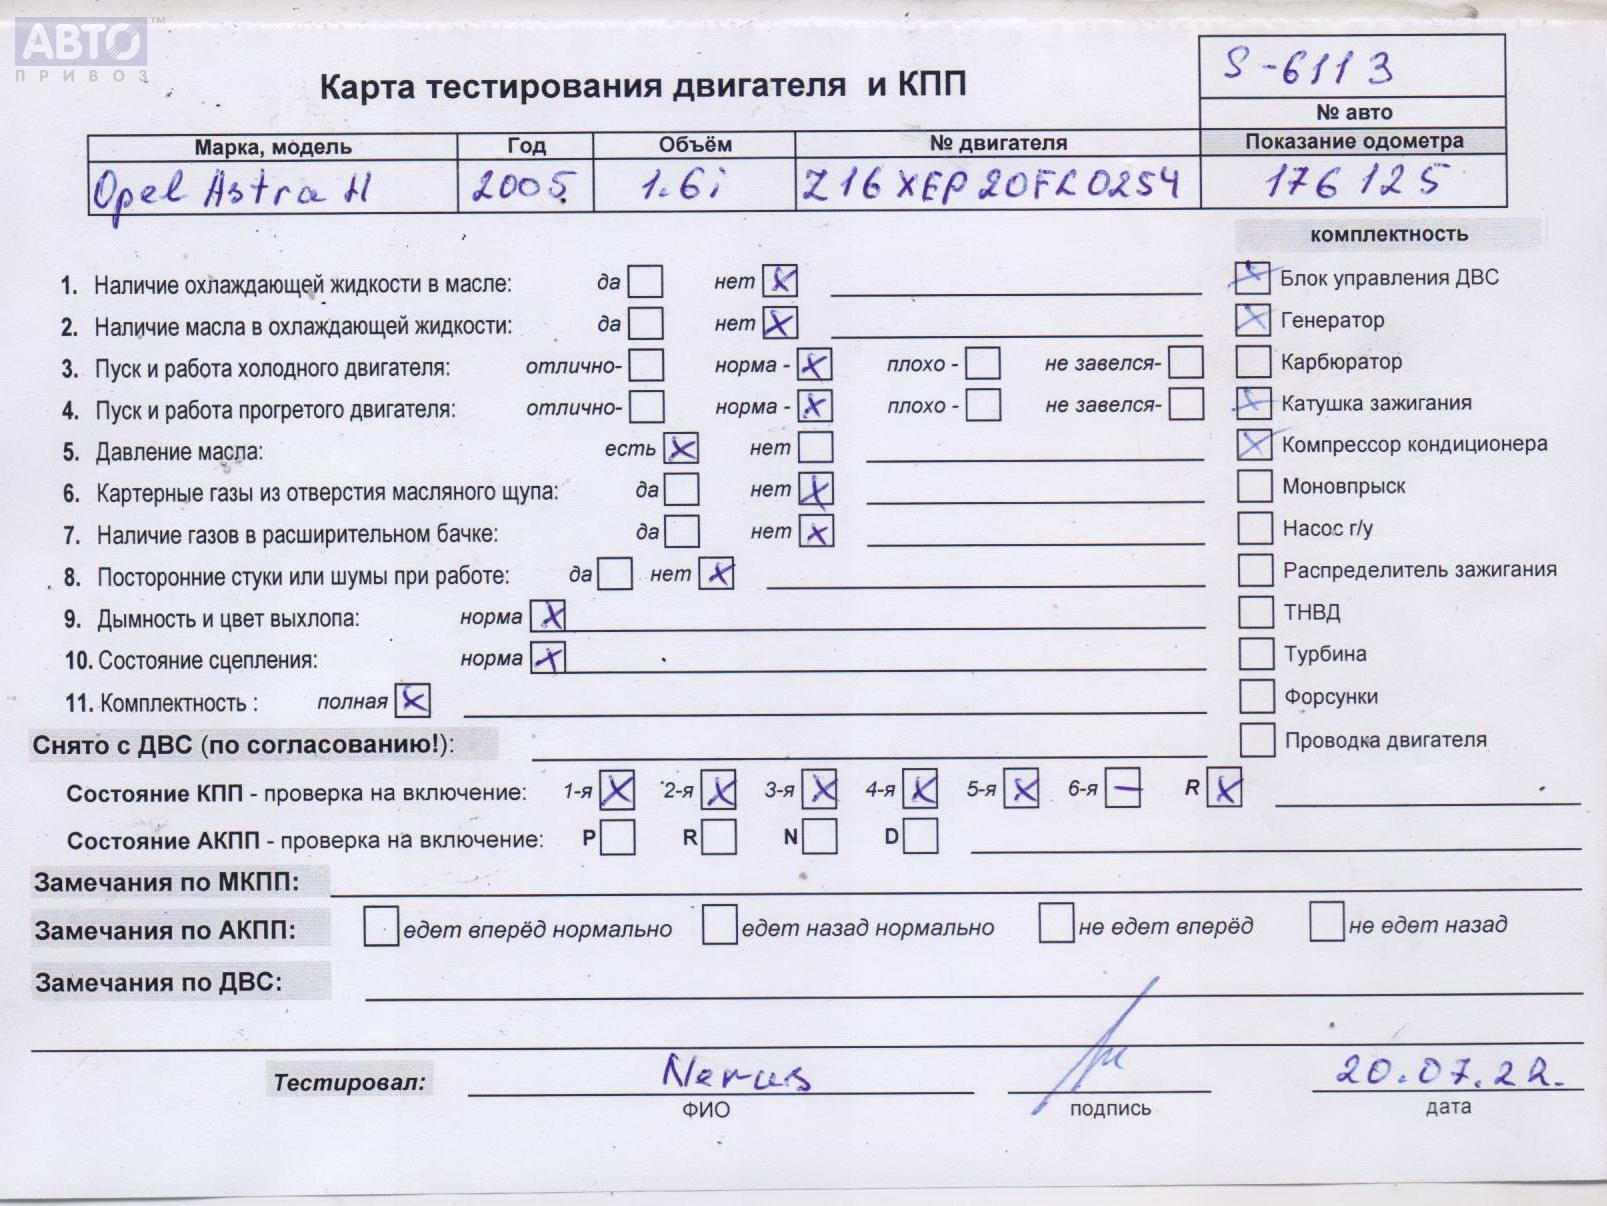 АВТО™
ПРИВОЗ
S-6113
Карта тестирования двигателя и КПП
№ авто
Марка, модель Год Объём № двигателя Показание одометра
Opel Astra H 2005 1.6i Z16XEP20FL0254 176125
комплектность
1. Наличие охлаждающей жидкости в масле: да нет X
Блок управления ДВС
2. Наличие масла в охлаждающей жидкости: да нет X
Генератор
3. Пуск и работа холодного двигателя: отлично- норма - X плохо - не завелся-
Карбюратор
4. Пуск и работа прогретого двигателя: отлично- норма - X плохо - не завелся-
Катушка зажигания
5. Давление масла: есть X нет
Компрессор кондиционера
6. Картерные газы из отверстия масляного щупа: да нет X
Моновпрыск
7. Наличие газов в расширительном бачке: да нет X
Насос г/у
8. Посторонние стуки или шумы при работе: да нет X
Распределитель зажигания
9. Дымность и цвет выхлопа: норма X
ТНВД
10. Состояние сцепления: норма X
Турбина
11. Комплектность : полная X
Форсунки
Снято с ДВС (по согласованию!):
Проводка двигателя
Состояние КПП - проверка на включение: 1-я X 2-я X 3-я X 4-я X 5-я X 6-я — R X
Состояние АКПП - проверка на включение: P R N D
Замечания по МКПП:
Замечания по АКПП: едет вперёд нормально едет назад нормально не едет вперёд не едет назад
Замечания по ДВС:
Тестировал: 20.07.22.
ФИО подпись дата